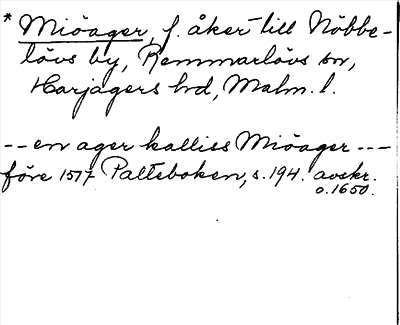 * Miöager, f. åker till Nöbbe-
lövs by, Remmarlövs sn,
Harjagers hd, Malm. l.
-- en ager kalliss Miöager ---
före 1577 Palteboken, s. 194. avskr.
o. 1650.